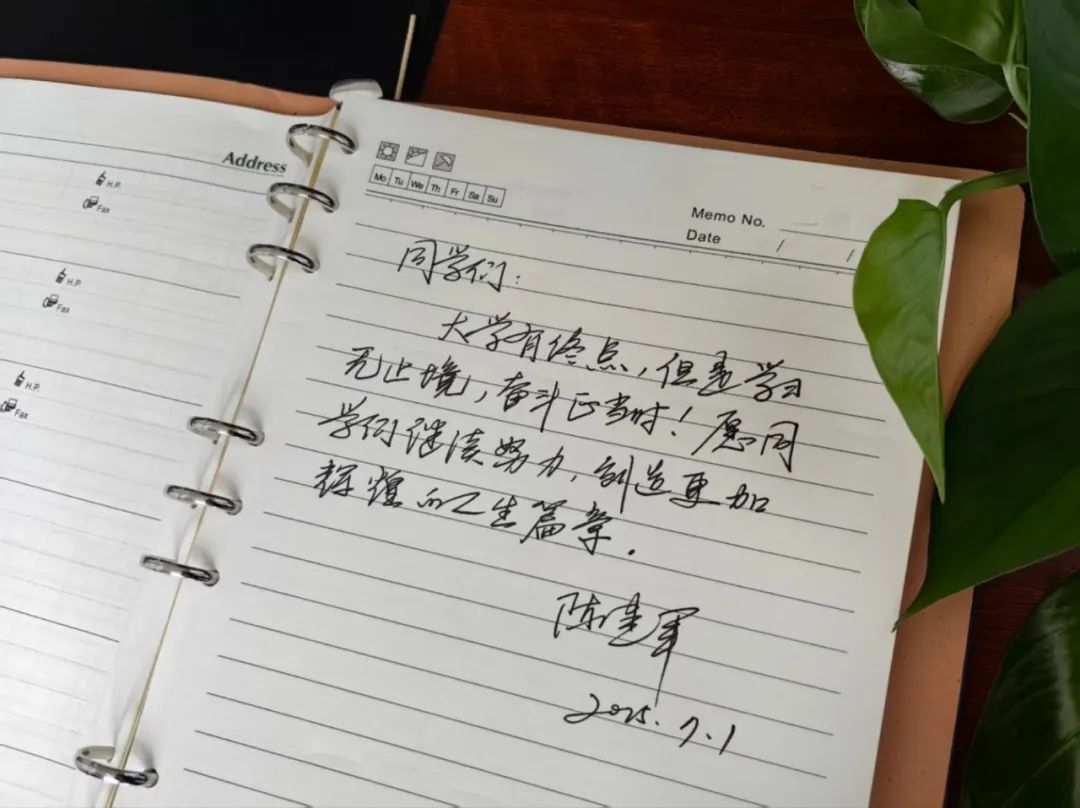 Address
H.P.
Fax
H.P.
Fax
H.P.
Fax
Mo Tu We Th Fr Sa Su
Memo No.
Date / /
同学们：
大学有终点，但是学习
无止境，奋斗正当时！愿同
学们继续努力，创造更加
辉煌的人生篇章．
陈建军
2025.7.1